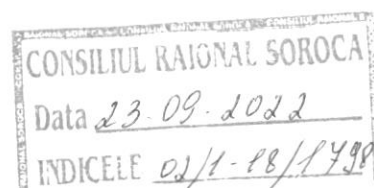 CONSILIUL RAIONAL SOROCA
Data 23.09.2022
INDICELE 02/1-18/1798